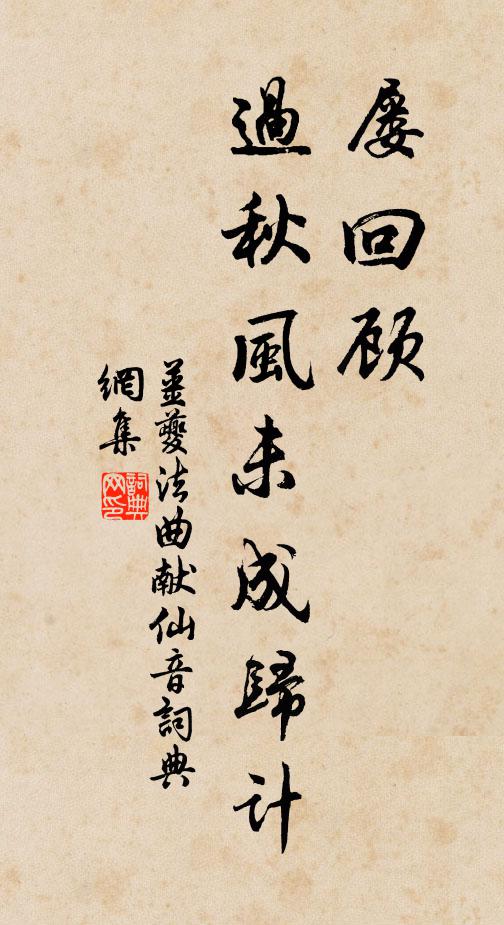 屡回顾
過秋風未成歸计
姜夔法曲献仙音詞典
網集
詞典
网印